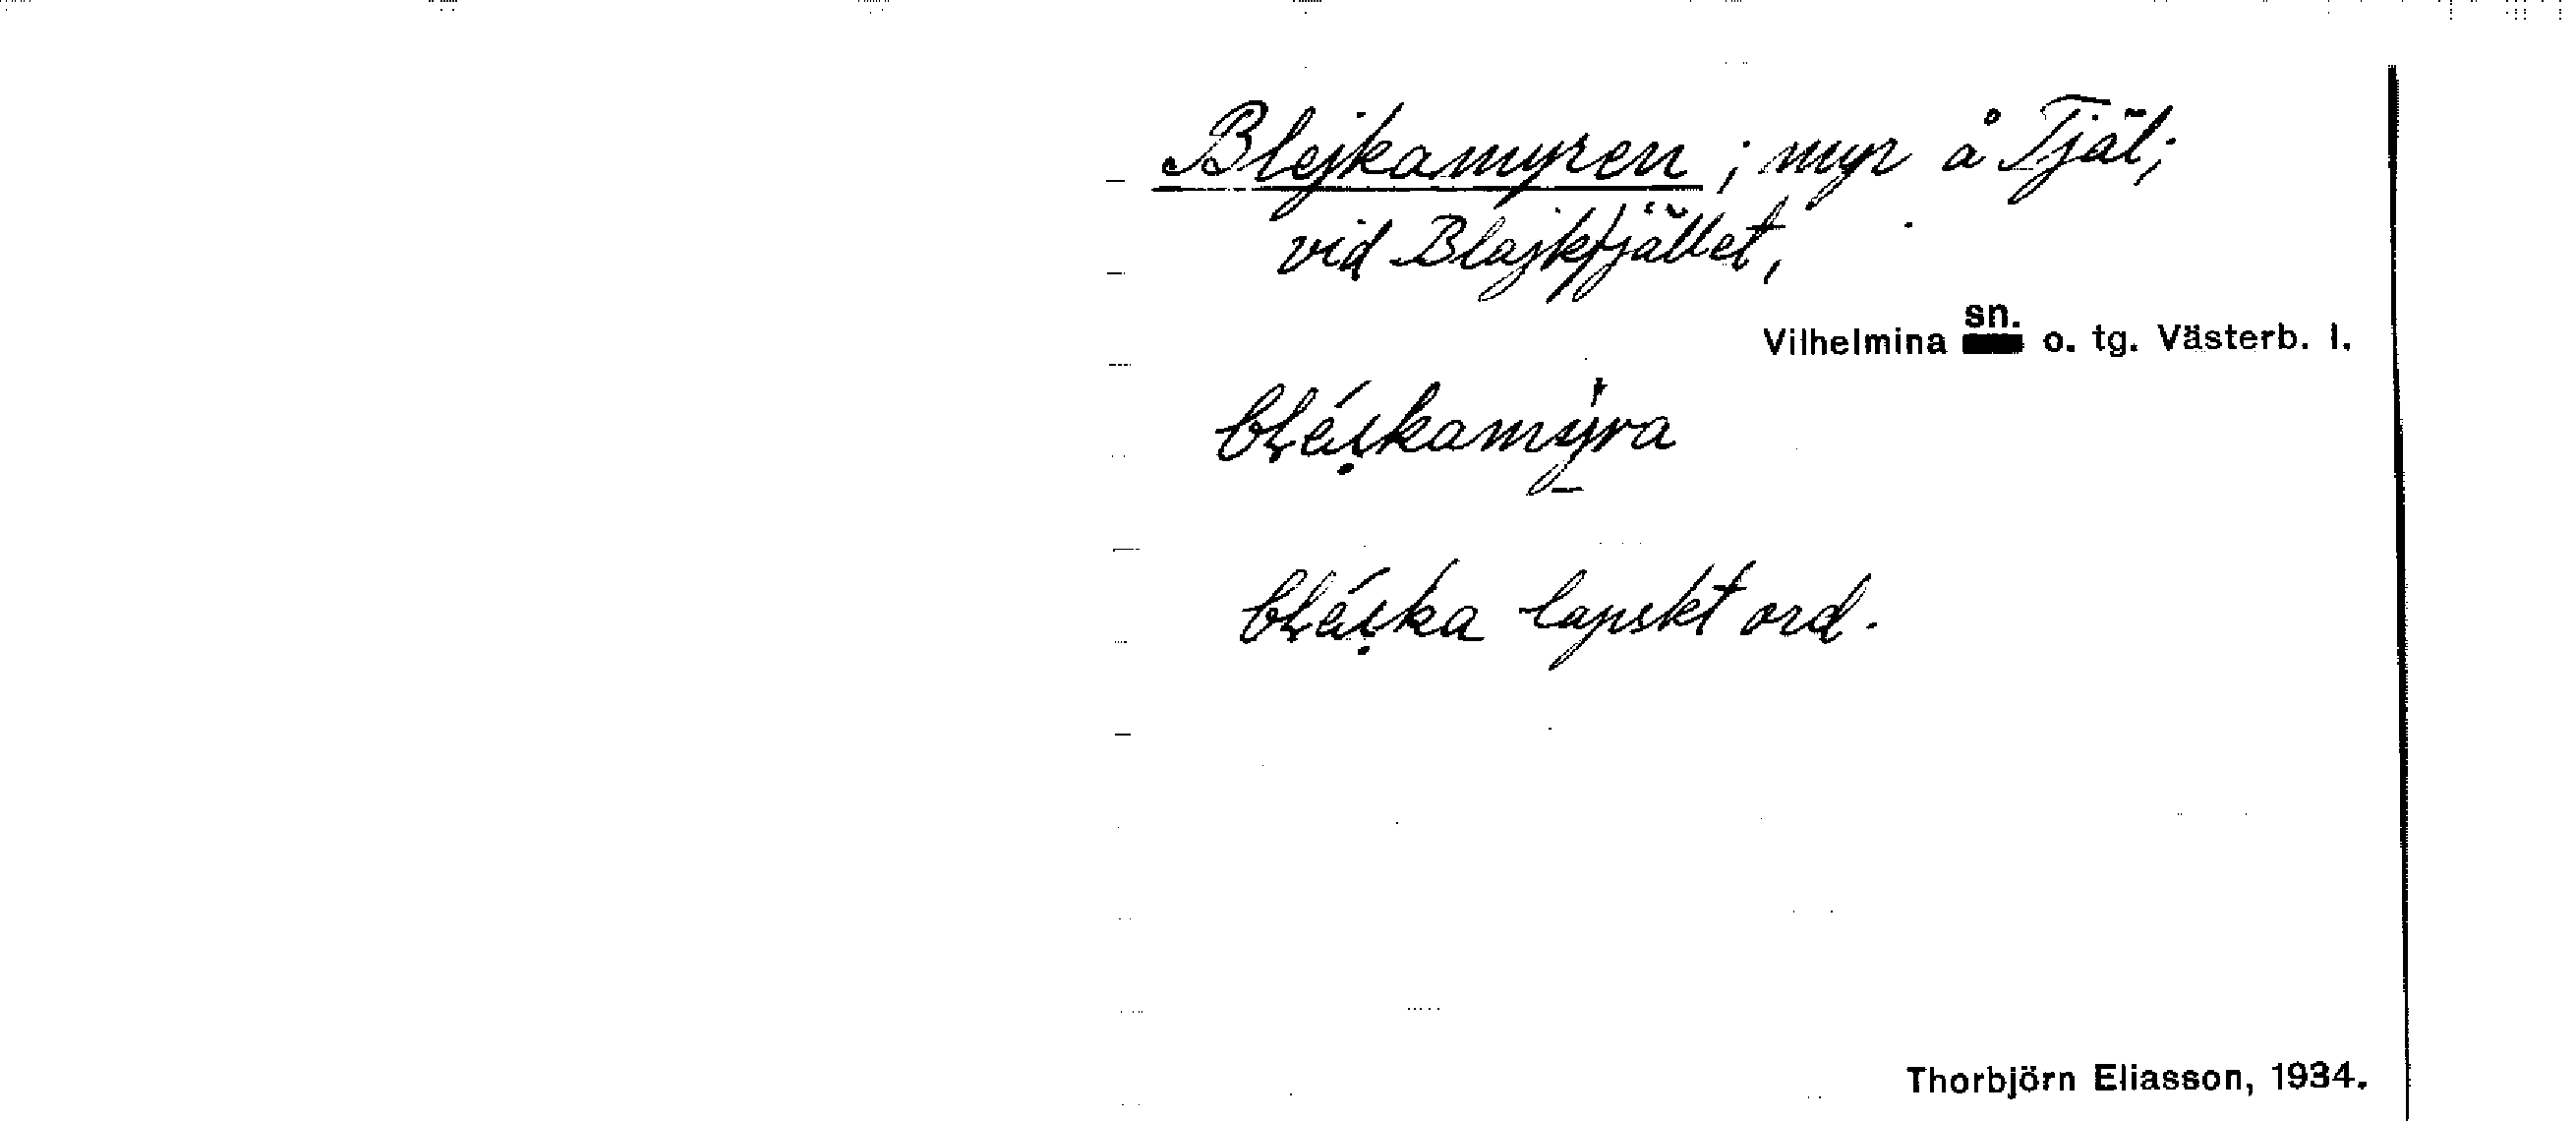 Blejkamyren; myr å Tjäl;
vid Blajkfjället,
Vilhelmina sn. o. tg. Västerb. l.
bléi̥kamy̠ra
bléi̥ka lapskt ord.
Thorbjörn Eliasson, 1934.